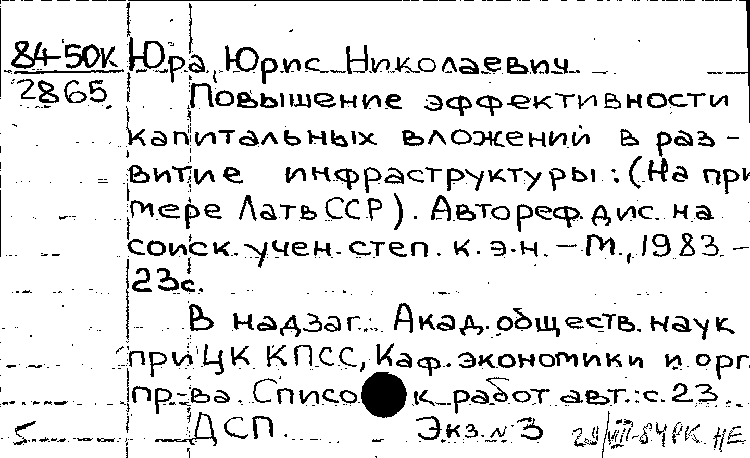 84-50К Юра, Юрис Николаевич
2865. Повышение эффективности
капитальных вложений в раз-
витие инфраструктуры: (На при
мере ЛатвССР). Автореф. дис. на
соиск. учен. степ. к. э. н. – М., 1983 –
23с.
В надзаг.: Акад. обществ. наук
при ЦК КПСС, Каф. экономики и орг.
пр-ва. Список работ авт.: с. 23.
5 ДСП. Экз. № 3 НЕ